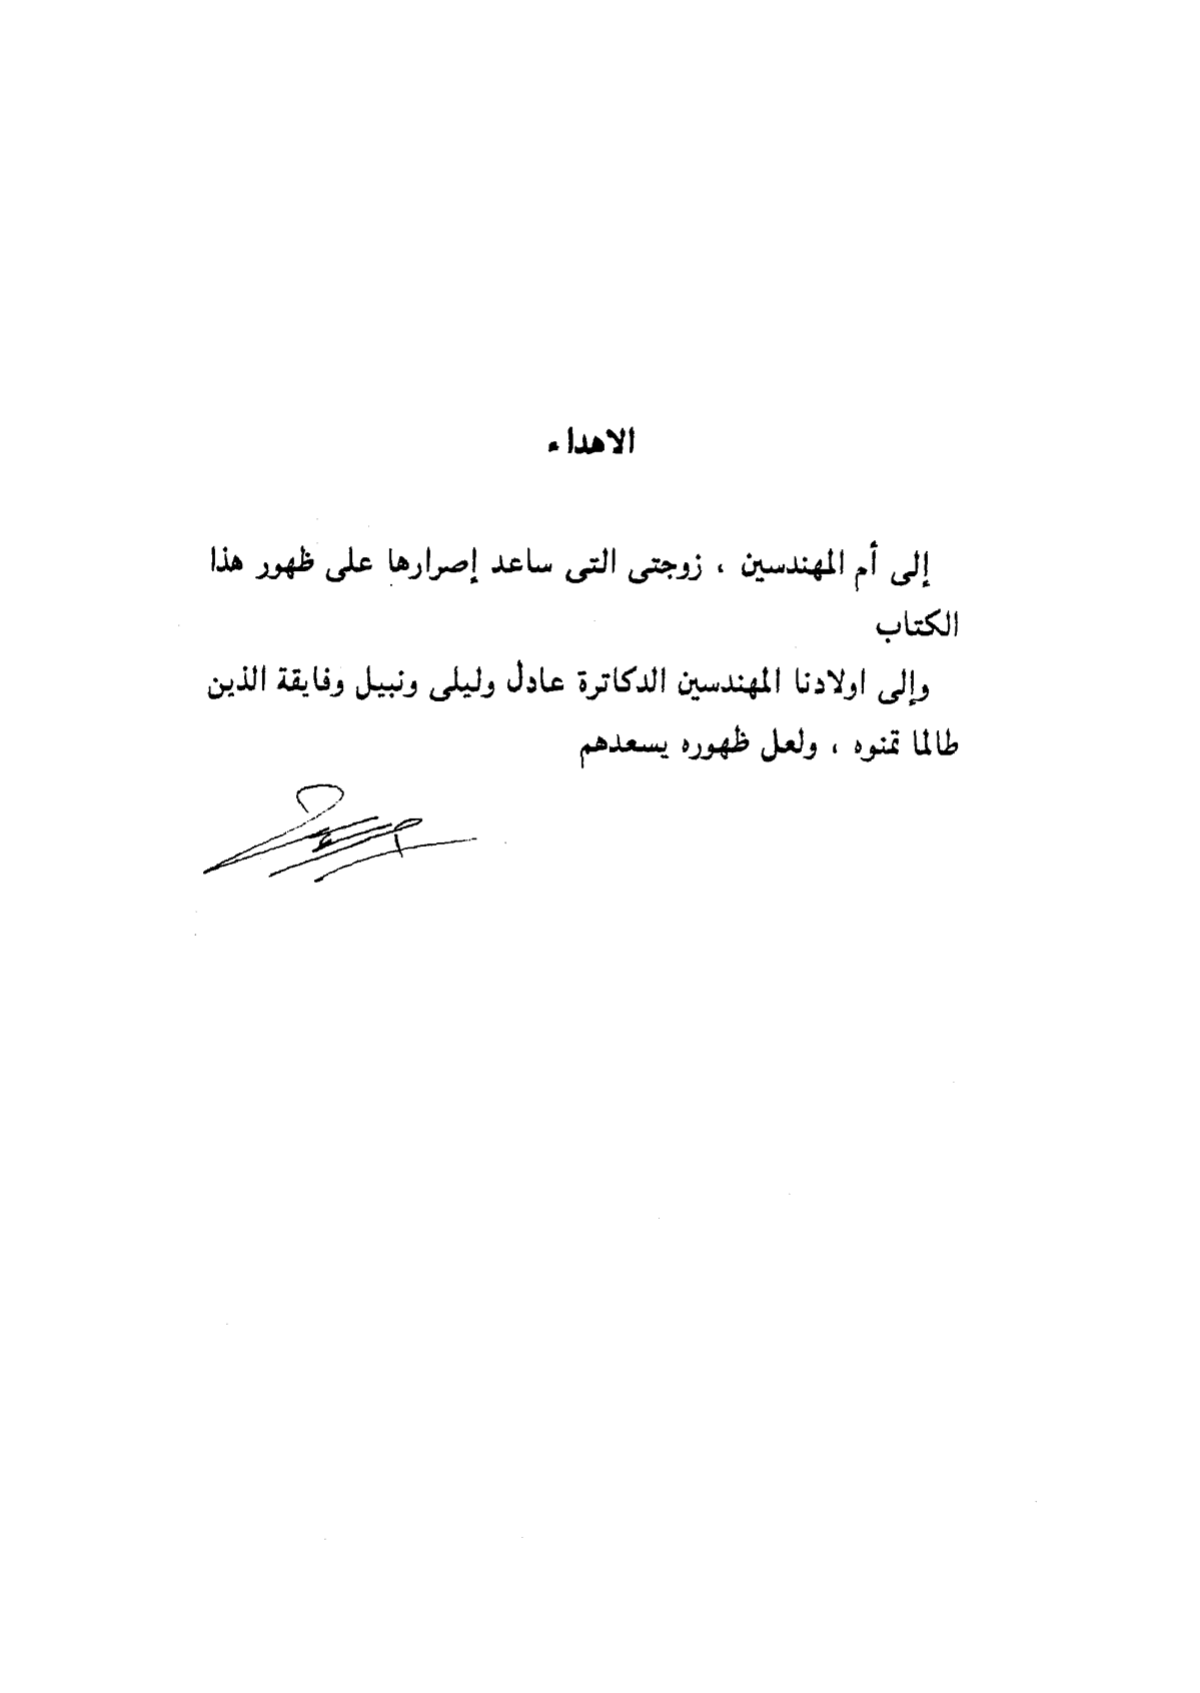 الاهداء
إلى أم المهندسين ، زوجتى التى ساعد إصرارها على ظهور هذا
الكتاب
وإلى اولادنا المهندسين الدكاترة عادل وليلى ونبيل وفايقة الذين
طالما تمنوه ، ولعل ظهوره يسعدهم